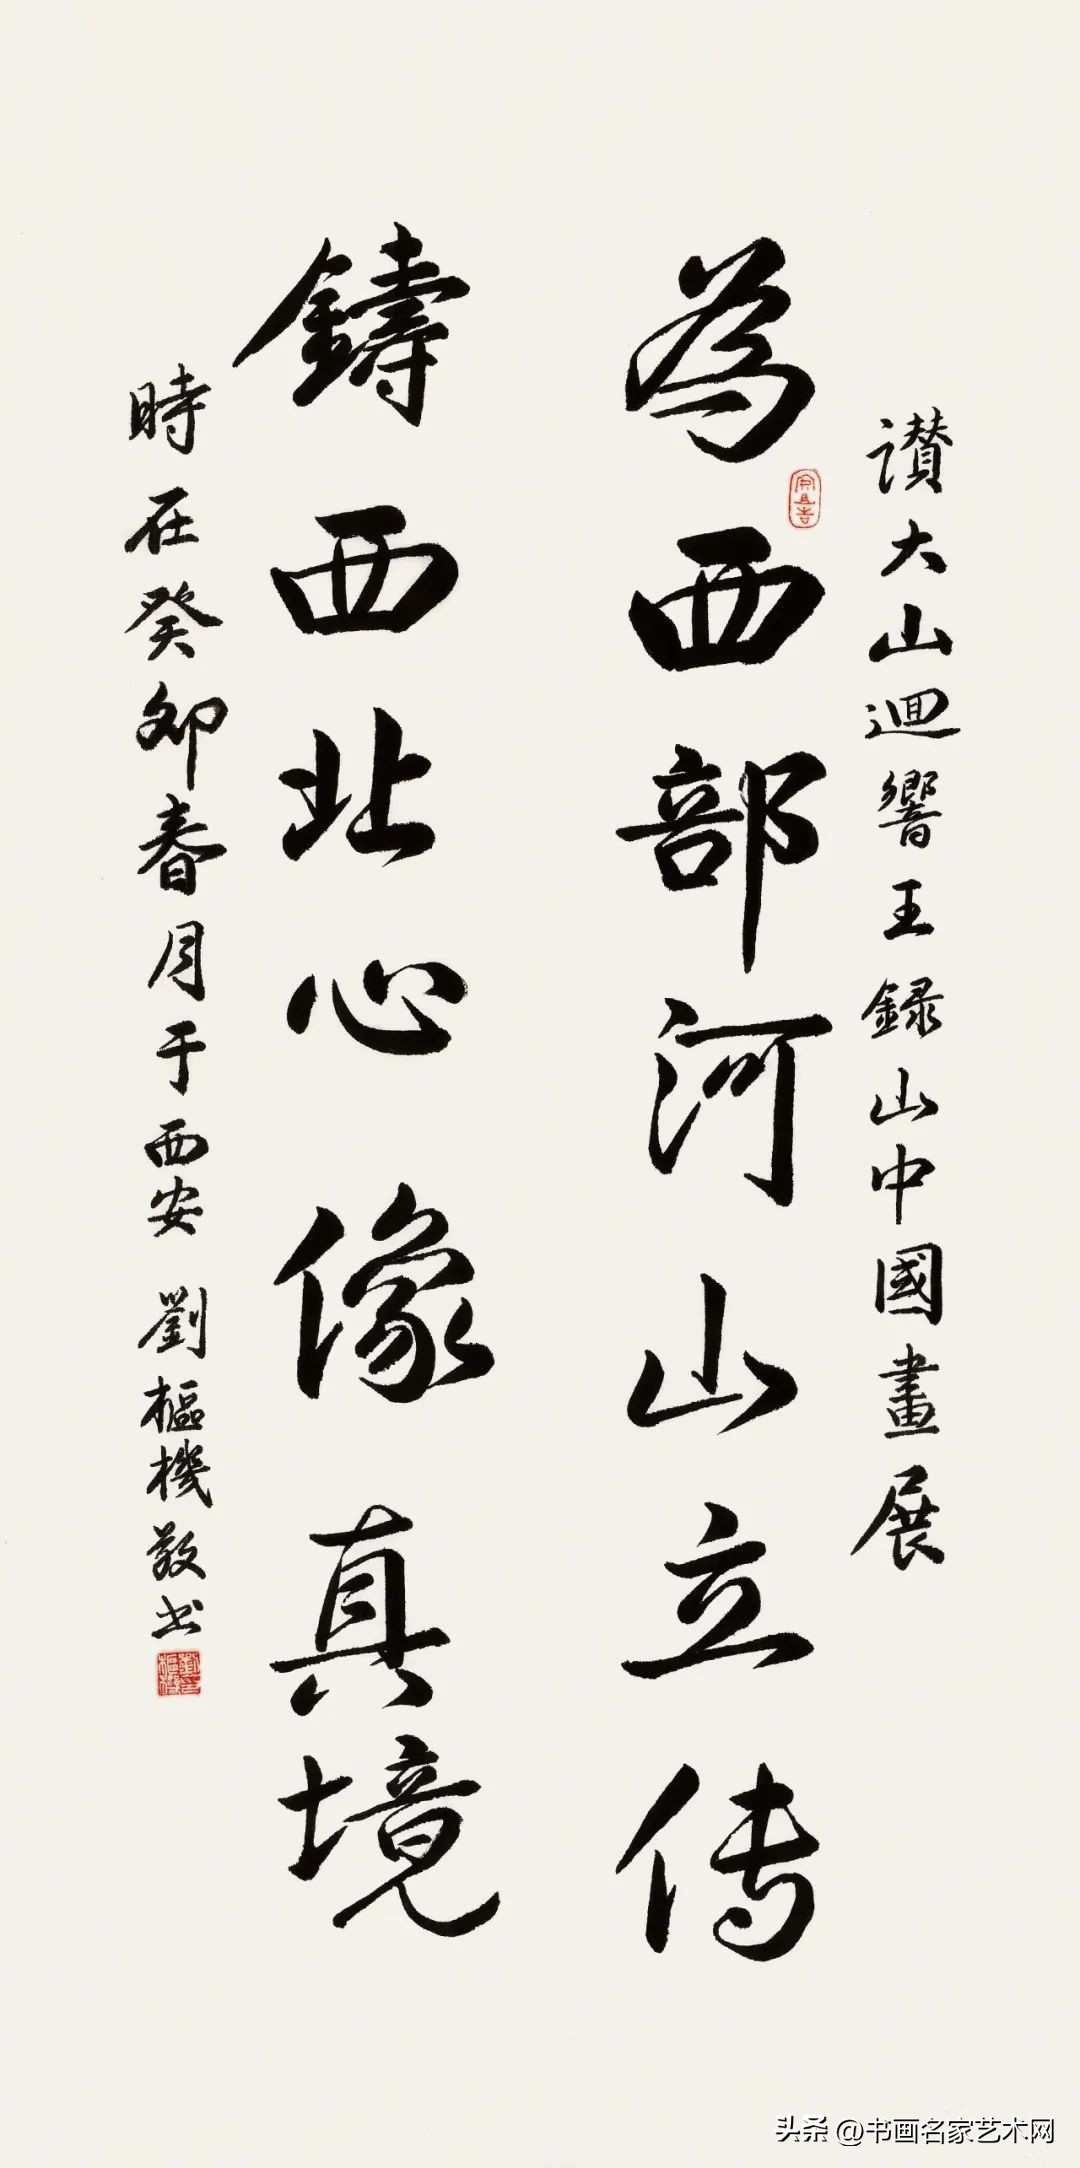 讃大山迴響王録山中國畫展
為西部河山立传
鑄西北心像真境
時在癸卯春月于西安 劉樞機敬书
头条 @书画名家艺术网